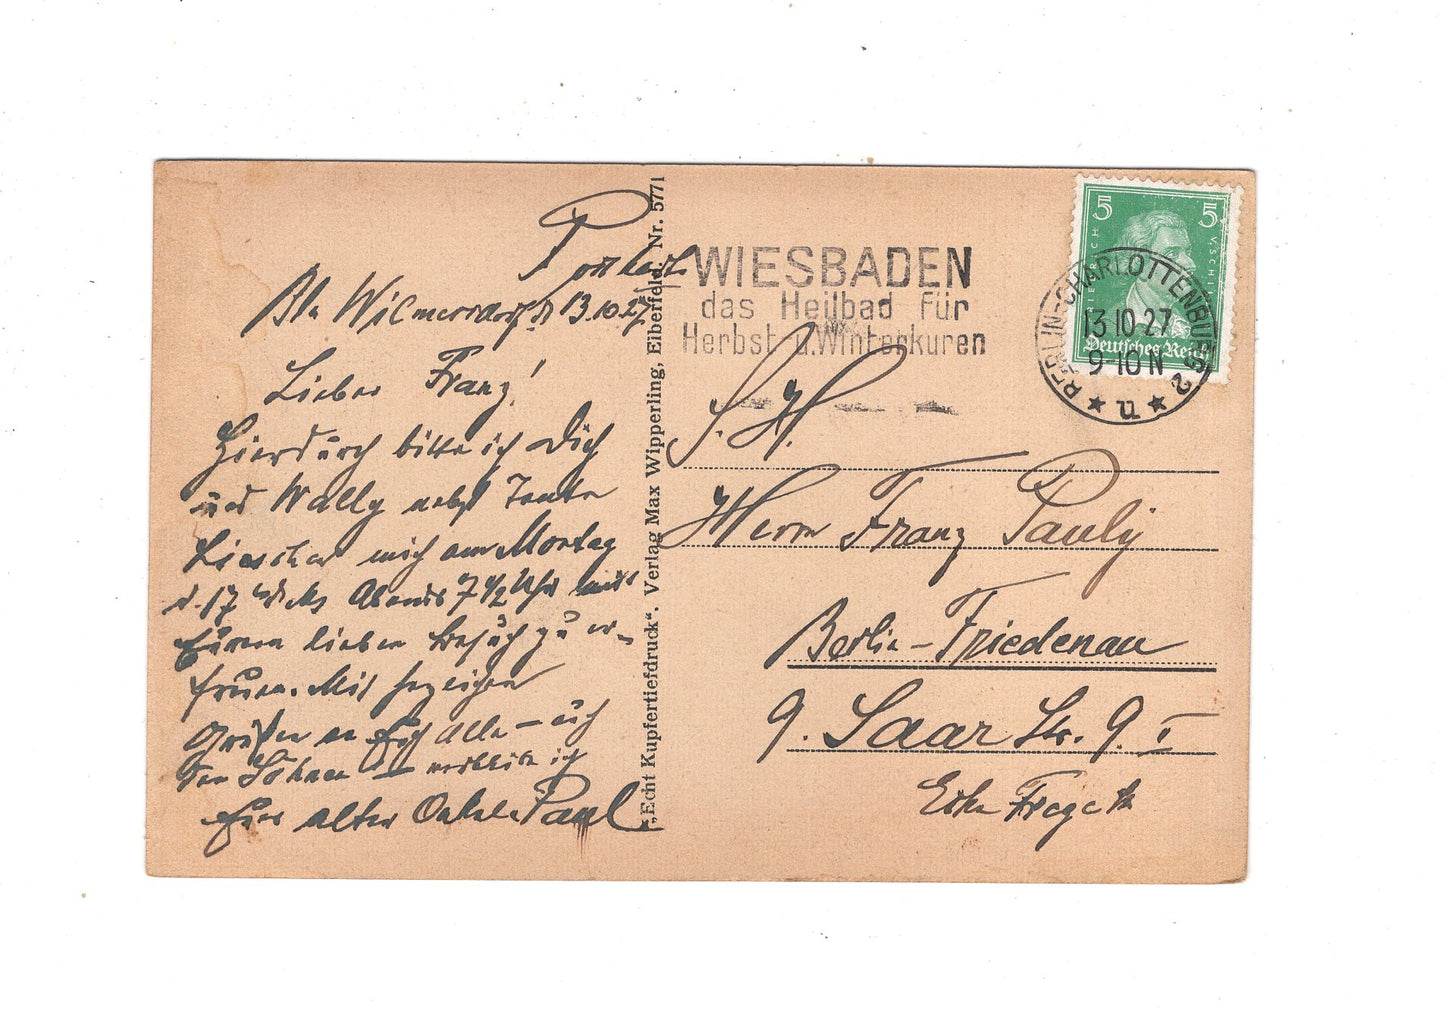 Postkarte
Bln Wilmersdorf, d. 13.10.27
Lieber Franz!
Hierdurch bitte ich Dich
und Wally nebst Tante
Lieschen mich am Montag
d. 17 Abends 7 1/2 Uhr mit
Eurem lieben Besuch zu er-
freuen. Mit herzlichen
Grüßen an Euch Alle – auch
den Söhnen – verbleibe ich
Euer alter Onkel Paul
„Echt Kupfertiefdruck“. Verlag Max Wipperling, Elberfeld. Nr. 5771
WIESBADEN
das Heilbad für
Herbst u. Winterkuren
5 5
Deutsches Reich
BERLIN-CHARLOTTENBURG 2
13 10 27
9-10 N
★ n ★
S. H.
Herrn Franz Pauly
Berlin-Friedenau
9. Saar Str. 9. I
Ecke Frege